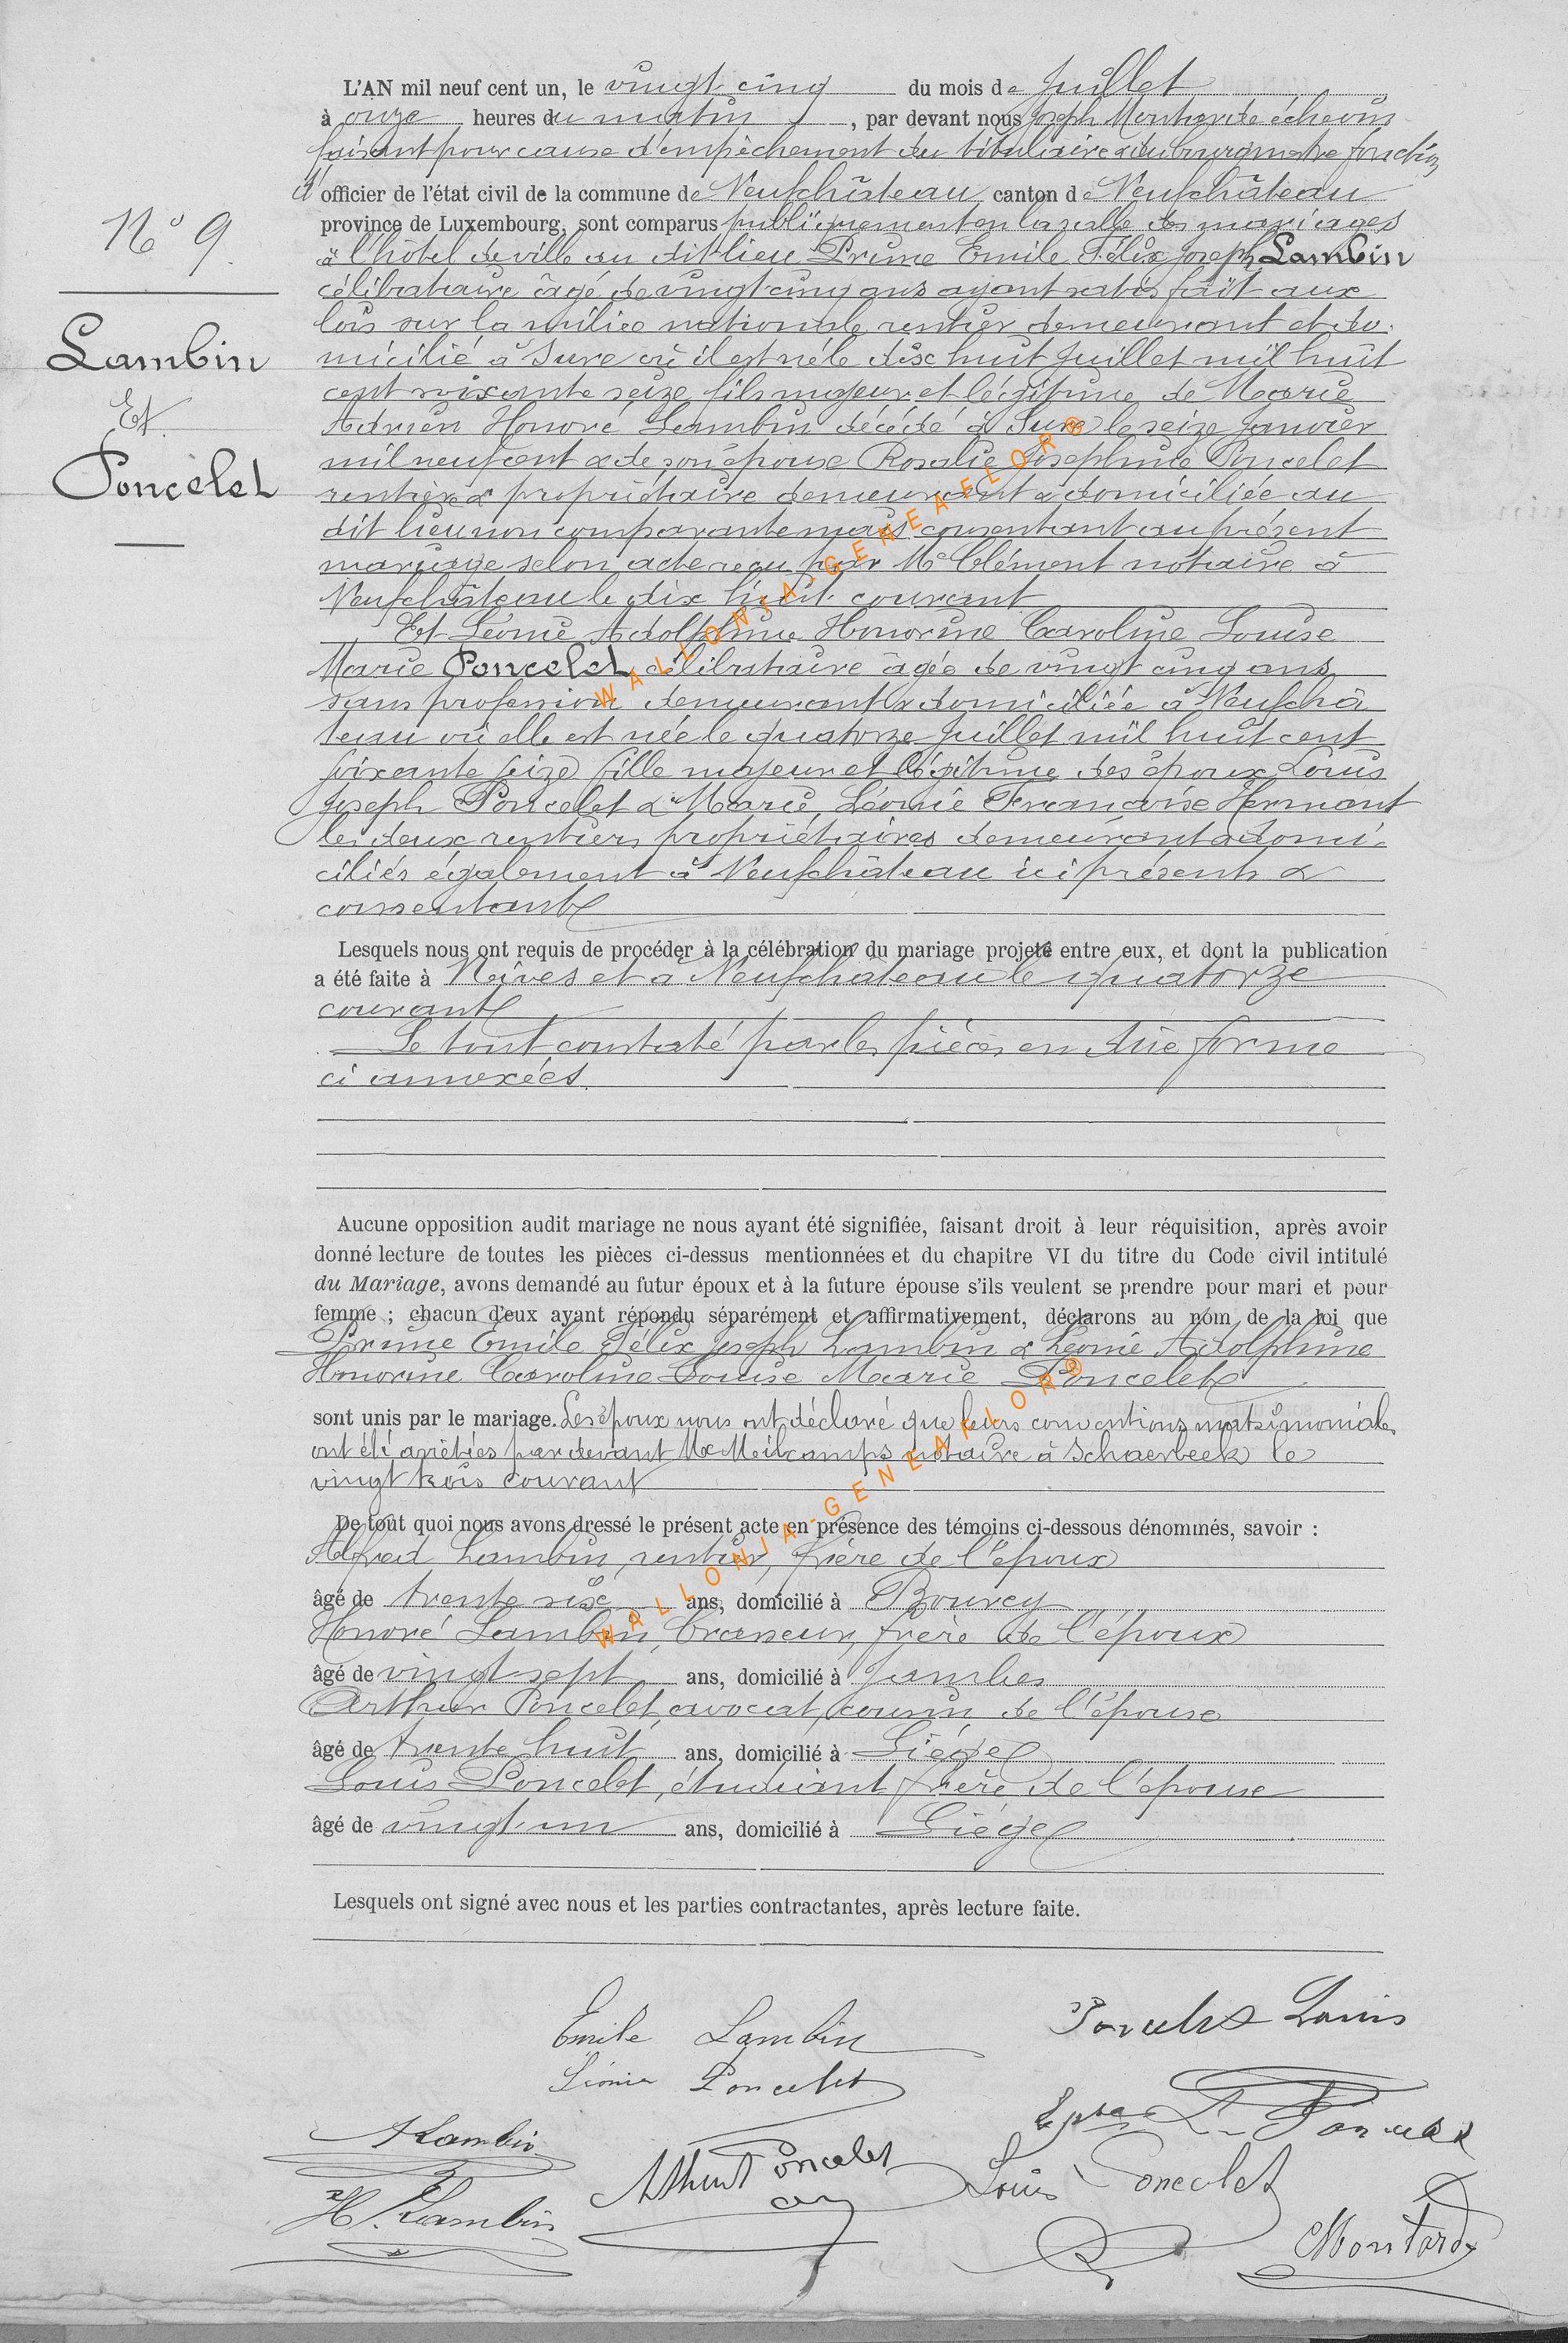 L'AN mil neuf cent un, le vingt cinq du mois de Juillet
à onze heures du matin, par devant nous Joseph échevin
faisant pour cause d'empêchement du titulaire & du bourgmestre fonction
d'officier de l'état civil de la commune de Neufchâteau canton de Neufchâteau
province de Luxembourg, sont comparus publiquement en la salle des mariages
N° 9.
à l'hôtel de ville au dit lieu Prime Emile Félix Joseph Lambin
célibataire âgé de vingt cinq ans ayant satisfait aux
lois sur la milice nationale rentier demeurant et do-
Lambin
Et
Poncelet
micilié à Sure où il est né le dix huit Juillet mil huit
cent soixante seize fils majeur et légitime de Marie
Adrien Honoré Lambin décédé à Sure le seize Janvier
mil neuf cent & de son épouse Rosalie Josephine Poncelet
rentière & propriétaire demeurant & domiciliée au
dit lieu non comparante mais consentant au présent
mariage selon acte reçu par Me Clément notaire à
Neufchâteau le dix huit courant
Et Léonie Adolphine Honorine Caroline Louise
Marie Poncelet célibataire âgée de vingt cinq ans
sans profession demeurant & domiciliée à Neufchâ
teau où elle est née le quatorze Juillet mil huit cent
soixante seize fille majeur et légitime des époux Louis
Joseph Poncelet & Marie, Léonie Françoise Hermant
les deux rentiers propriétaires demeurant & domi-
ciliés également à Neufchâteau ici présents &
consentants
Lesquels nous ont requis de procéder à la célébration du mariage projeté entre eux, et dont la publication
a été faite à Nives et à Neufchâteau le quatorze
courant
Le tout constaté par les pièces en due forme
ci annexées.
Aucune opposition audit mariage ne nous ayant été signifiée, faisant droit à leur réquisition, après avoir
donné lecture de toutes les pièces ci-dessus mentionnées et du chapitre VI du titre du Code civil intitulé
du Mariage, avons demandé au futur époux et à la future épouse s'ils veulent se prendre pour mari et pour
femme ; chacun d'eux ayant répondu séparément et affirmativement, déclarons au nom de la loi que
Prime Emile Félix Joseph Lambin & Léonie Adolphine
Honorine Caroline Louise Marie Poncelet
sont unis par le mariage. Les époux nous ont déclaré que leurs conventions matrimoniales
ont été arrêtées par devant Me Meilcamps notaire à Schaerbeek le
vingt trois courant
De tout quoi nous avons dressé le présent acte en présence des témoins ci-dessous dénommés, savoir :
Alfred Lambin, rentier, frère de l'époux
âgé de trente six ans, domicilié à Bourcy
Honoré Lambin, brasseur, frère de l'époux
âgé de vingt-sept ans, domicilié à Jambes
Arthur Poncelet, avocat, cousin de l'épouse
âgé de trente huit ans, domicilié à Liége
Louis Poncelet, étudiant frère de l'épouse
âgé de vingt-un ans, domicilié à Liége
Lesquels ont signé avec nous et les parties contractantes, après lecture faite.
Emile Lambin Poncelet Louis
Léonie Poncelet
A Lambin
Arthur Poncelet
Louis Poncelet
H. Lambin
WALLONIA-GENEAFLOR®
WALLONIA-GENEAFLOR®